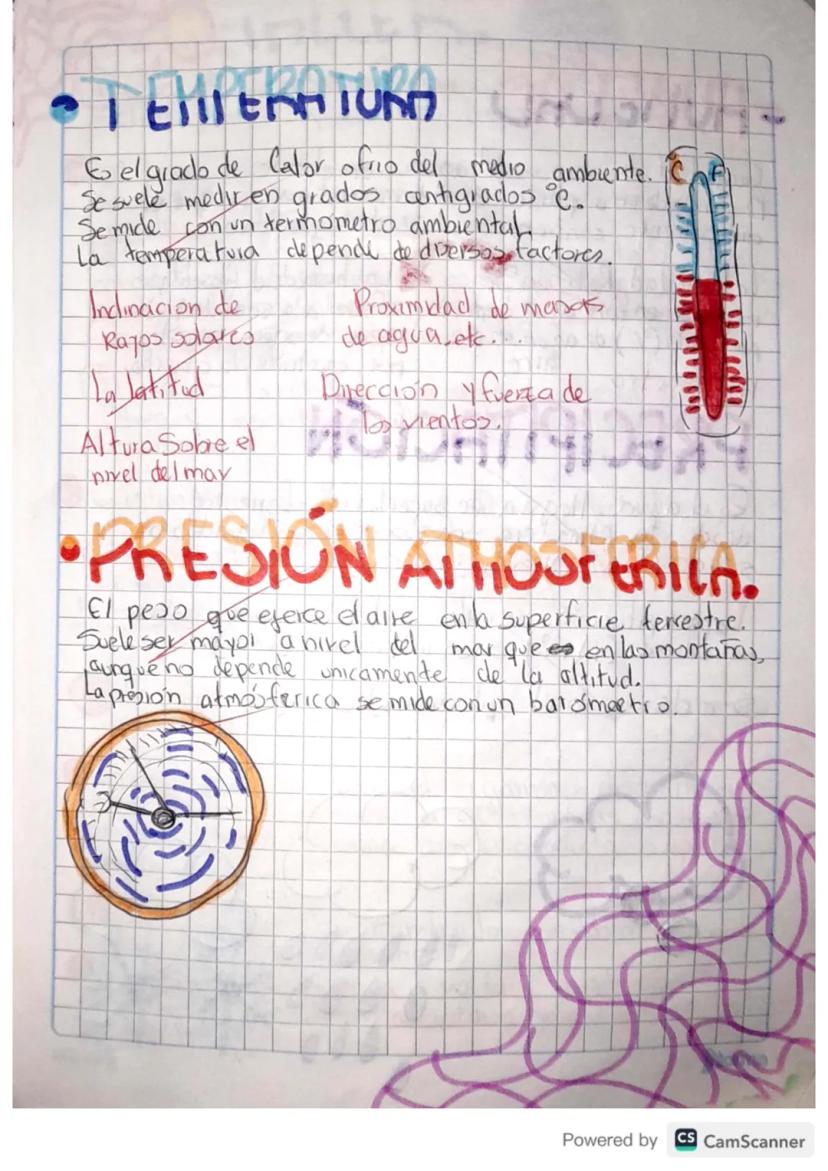 • TEMPERATURA
Es el grado de Calor o frio del medio ambiente.
Se suele medir en grados centigrados °C.
Se mide con un termometro ambiental.
La temperatura depende de diversos factores.
°C °F
Inclinacion de
Rayos solares
Proximidad de masas
de agua, etc...
La latitud
Dirección y fuerza de
los vientos.
Altura Sobre el
nivel del mar
• PRESIÓN ATMOSFERICA.
El peso que ejerce el aire en la superficie terrestre.
Suele ser mayor a nivel del mar que en las montañas,
aunque no depende unicamente de la altitud.
La presión atmósferica se mide con un barómetro.
Powered by CS CamScanner